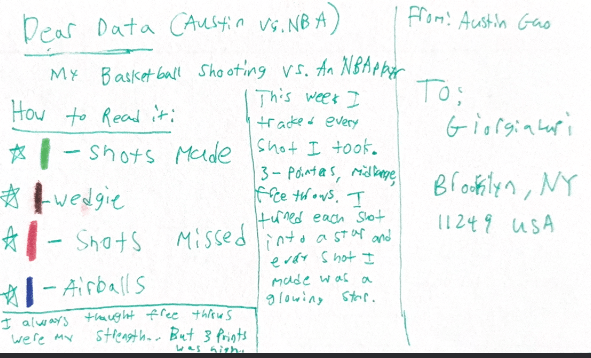 Dear Data (Austin vs. NBA)
My Basketball Shooting vs. An NBA player
How to Read it:
- Shots Made
- wedgie
- Shots Missed
- Airballs
I always thought free throws
were my strength... But 3 points
was high
This week I
tracked every
shot I took.
3-pointers, midrange,
free throws. I
turned each shot
into a star and
every shot I
made was a
glowing star.
From: Austin Gao
To:
Brooklyn, NY
11249 USA